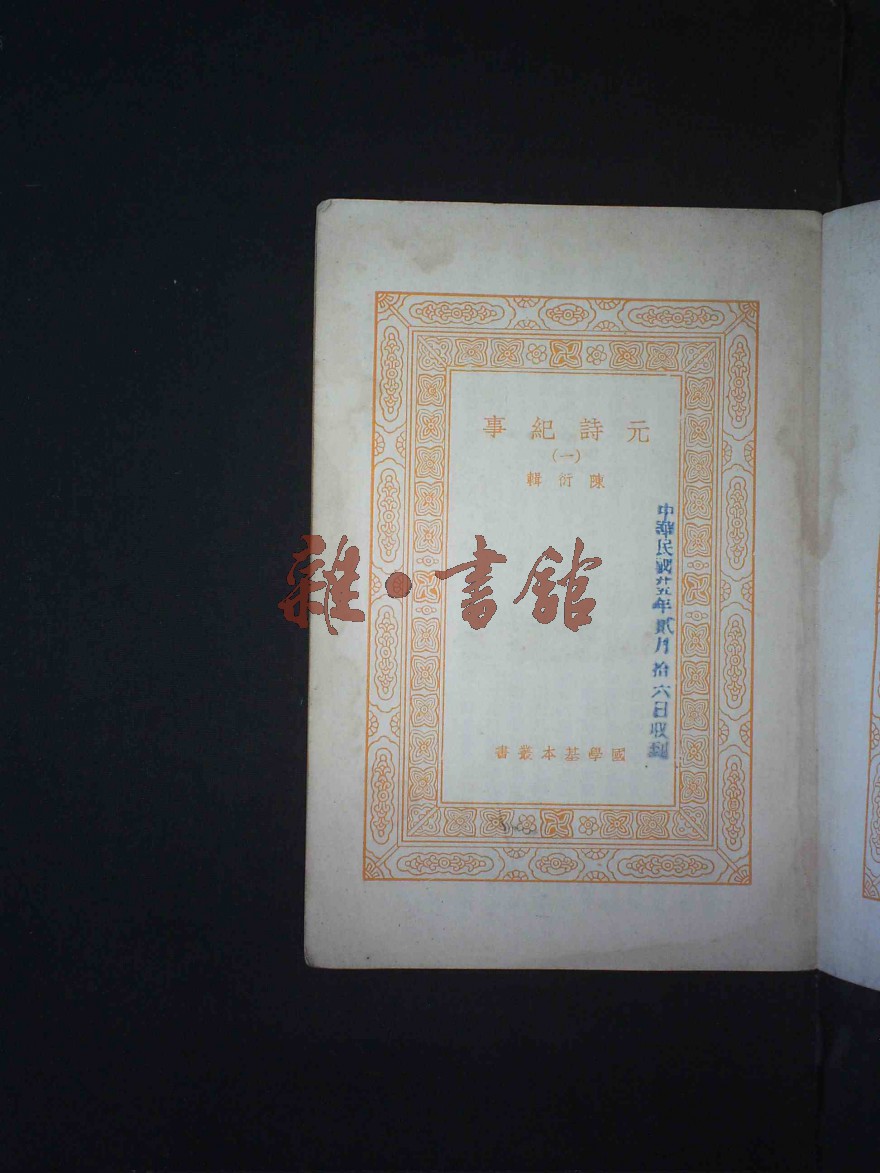 元詩紀事
(一)
陳衍輯
中華民國廿五年貳月拾六日收到
雜·書館
國學基本叢書